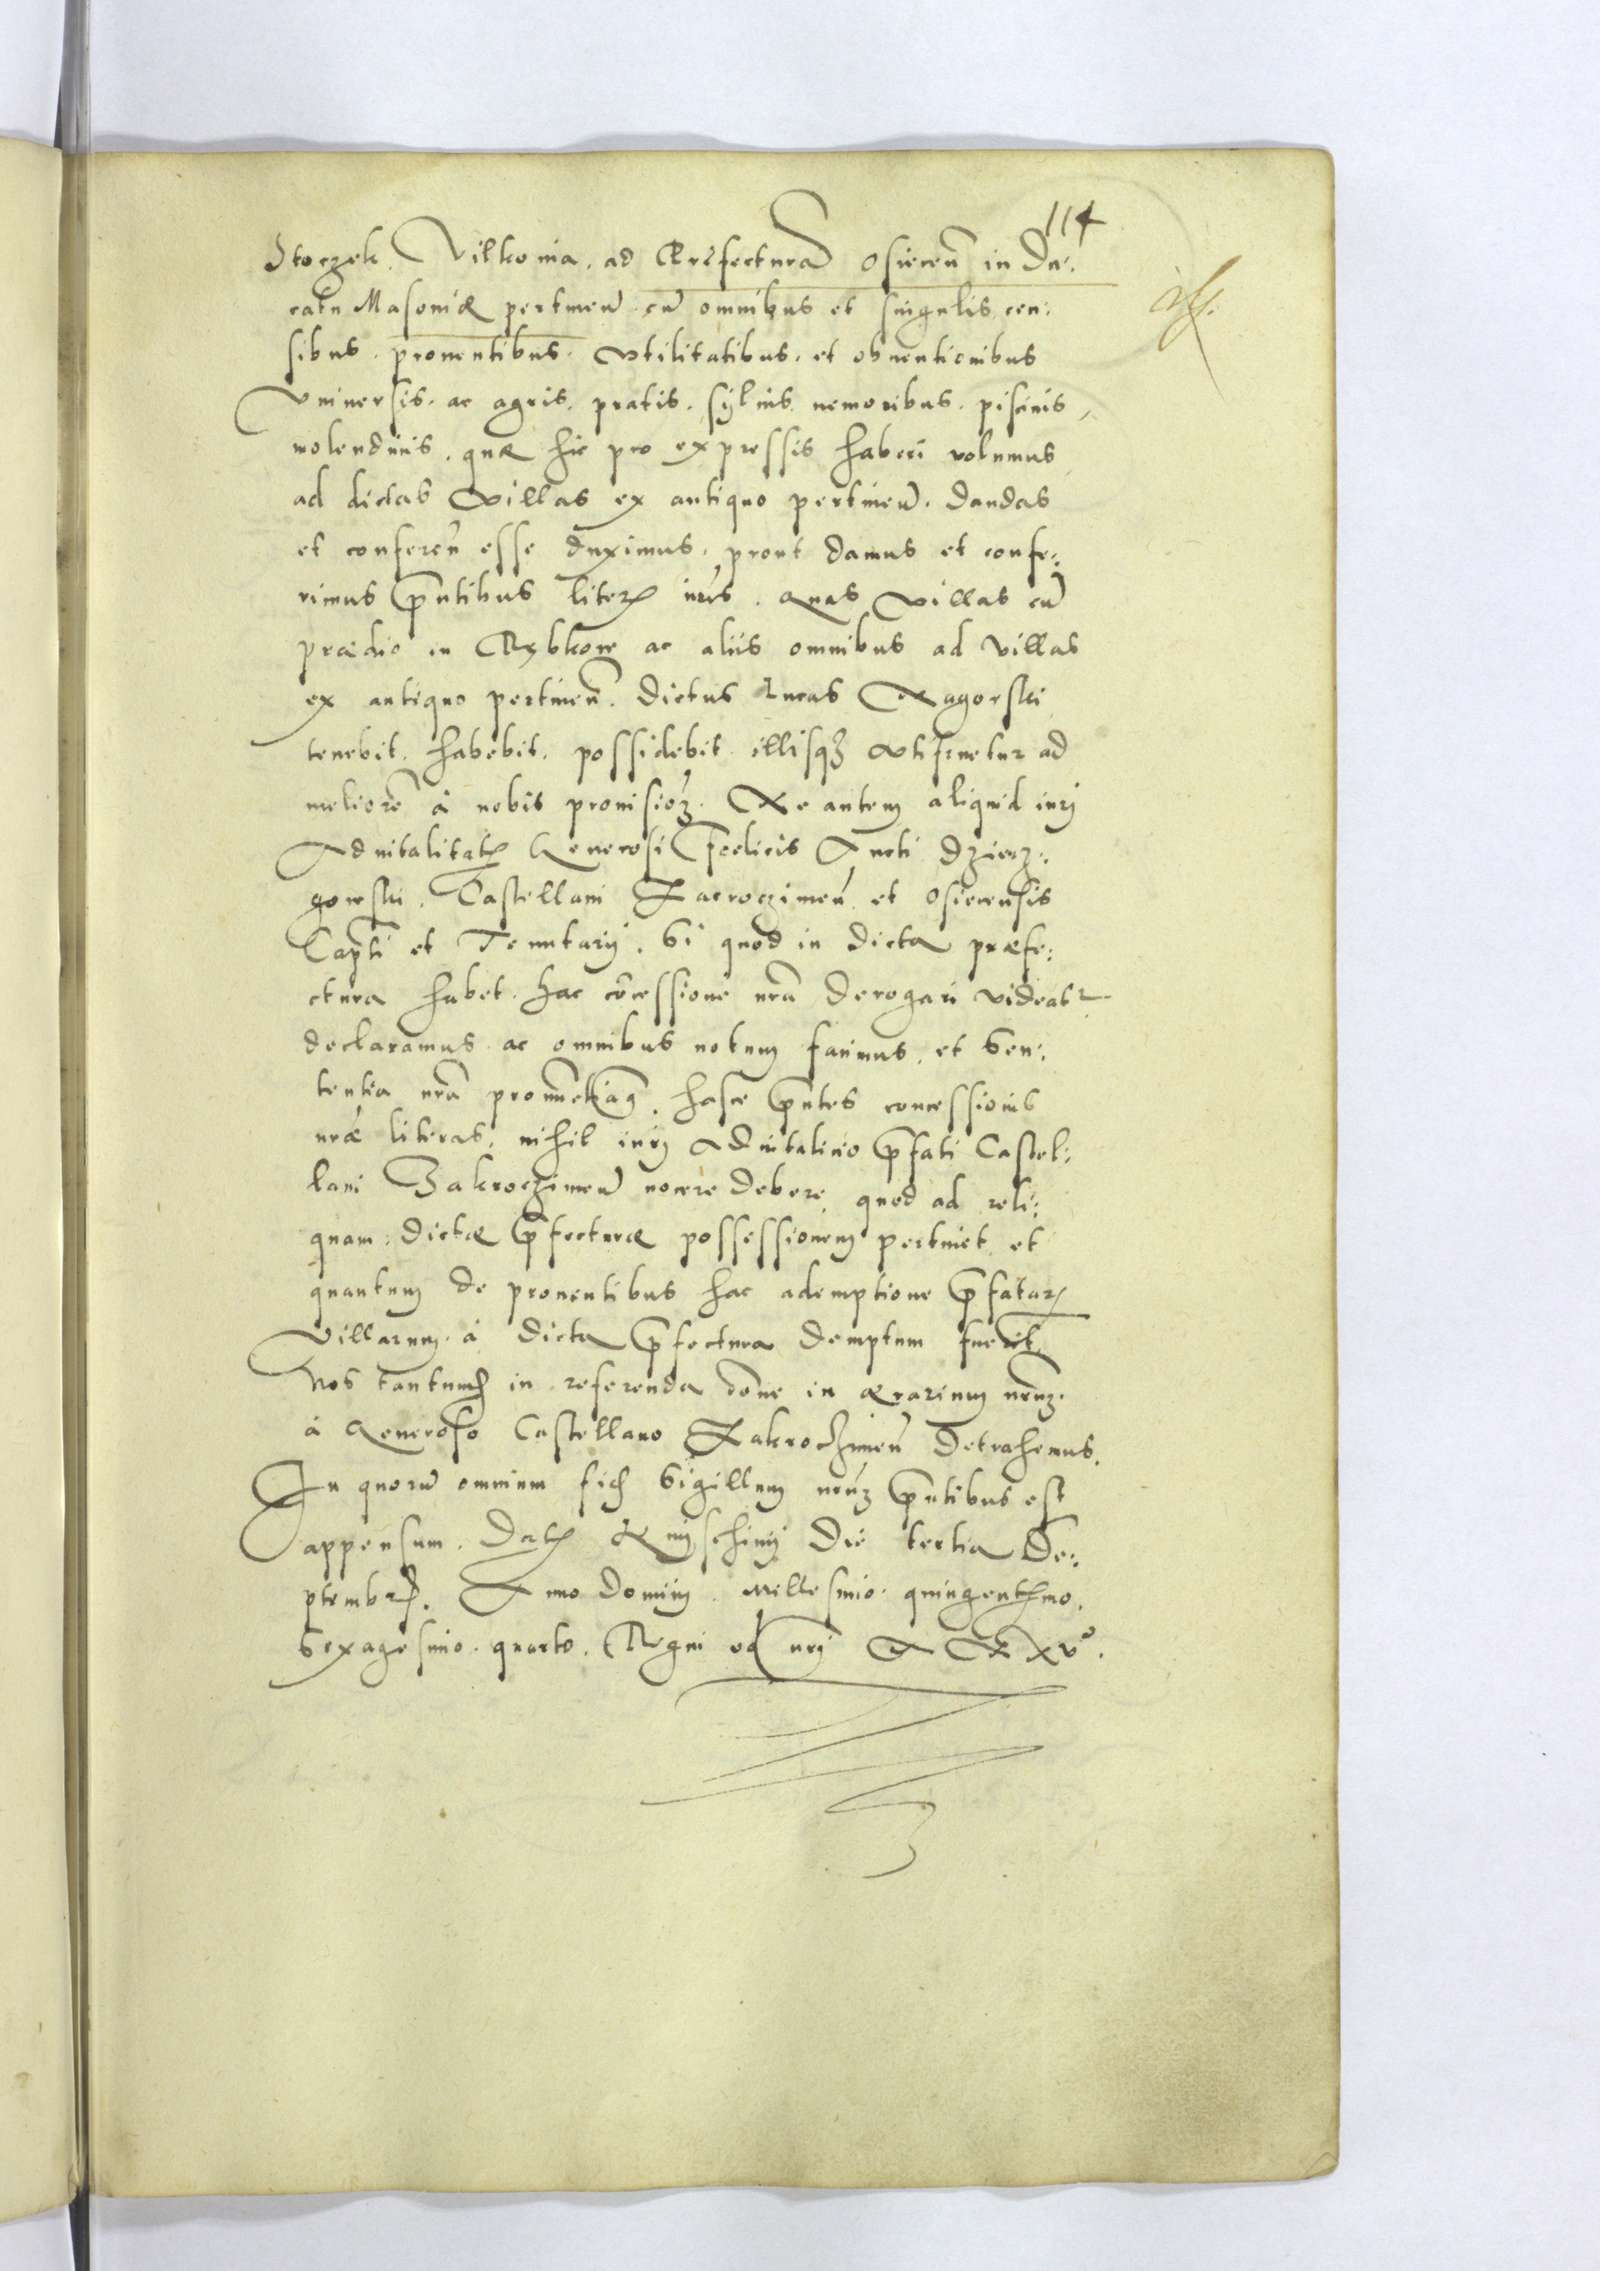 114
Stoczek. Vilkonia. ad Præfecturā Osiecen̄ in Du:
catu Masoniæ pertinen̄ cū omnibus et singulis cen:
sibus. proventibus. Vtilitatibus. et obventionibus
Vniuersis. ac agris. pratis. syluis nemoribus. piscinis
molendinis. quæ hic pro expressis haberi volumus
ad dictas Villas ex antiquo pertinen̄. dandas
et conferen̄ esse duximus. prout damus et confe:
rimus p̄ntibus literꝭ nr̄is. Quas villas cū
prædio in Rybkow ac aliis omnibus ad Villas
ex antiquo pertinen̄. Dictus Lucas Nagorski
tenebit. habebit. possidebit illisqꝫ Vtifruetur ad
meliorē à nobis prouisioꝫ. Ne autem aliquid iurj
Aduitalitatꝭ Generosi Felicis Aucti Dzierz:
gowski. Castellani Zacroczimen̄ et Osiecensis
Capti et Tenutarij. Si quod in dicta præfe:
ctura habet. hac cōcessione nr̄a derogari videatr
declaramus ac omnibus notum facimus. et Sen:
tentia nr̄a hasce p̄ntes concessionis
nr̄æ literas. nihil iurj Aduitalicio p̄fati Castel:
lani Zakroczimen̄ nocere debere quod ad reli:
quam dictæ p̄fecturæ possessionem pertinet et
quantum de prouentibus hac ademptione p̄fatarꝭ
Villarum. à dicta p̄fectura demptum fuerit
Nos tantundꝭ in referenda rōne in ærarium nr̄um.
à Generoso Castellano Zakroczimen̄ detrahemus.
In quorū omnium fidꝭ Sigillum nr̄uꝫ p̄ntibus est
appensum. Datꝭ Knyschinij Die tertia Se:
ptembrꝭ. Anno Dominj. Millesimo quingentꝭmo.
Sexagesimo. quarto. Regni vo nrj A XXXVᵒ.